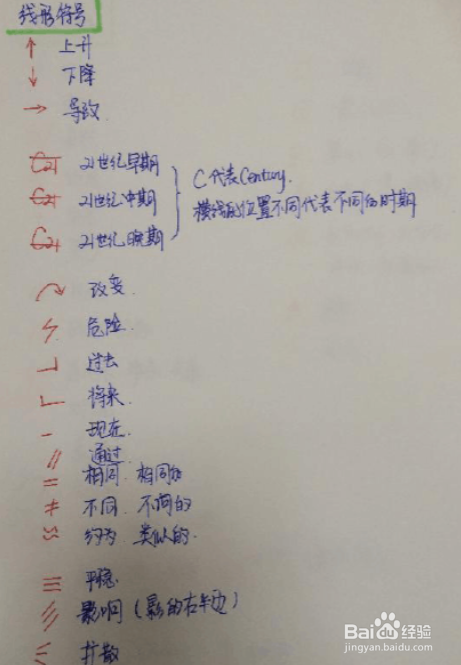 线形符号
↑ 上升
↓ 下降
→ 导致
C21 21世纪早期
C21 21世纪中期
C21 21世纪晚期
C代表Century.
横线的位置不同代表不同的时期
改变
危险
过去
将来
- 现在.
// 通过
= 相同. 相同的
≠ 不同. 不同的
≈ 约为 类似的.
≡ 平稳
/// 影响（影的右半边）
扩散
Baidu经验
jingyan.baidu.com